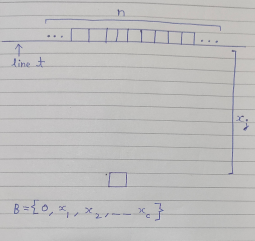 n
... ...
line t
x_j
B = {0, x_1, x_2, ... x_c}